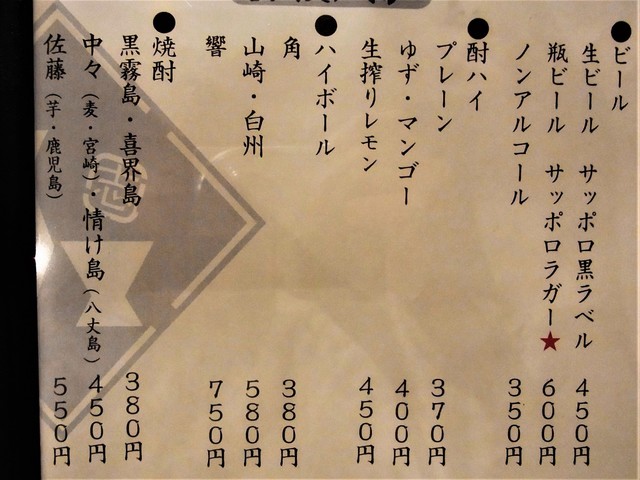 ●ビール
生ビール サッポロ黒ラベル 450円
瓶ビール サッポロラガー★ 600円
ノンアルコール 350円
●酎ハイ
プレーン 370円
ゆず・マンゴー 400円
生搾りレモン 450円
●ハイボール
角 380円
山崎・白州 580円
響 750円
●焼酎
黒霧島・喜界島 380円
中々(麦・宮崎)・情け島(八丈島) 450円
佐藤(芋・鹿児島) 550円